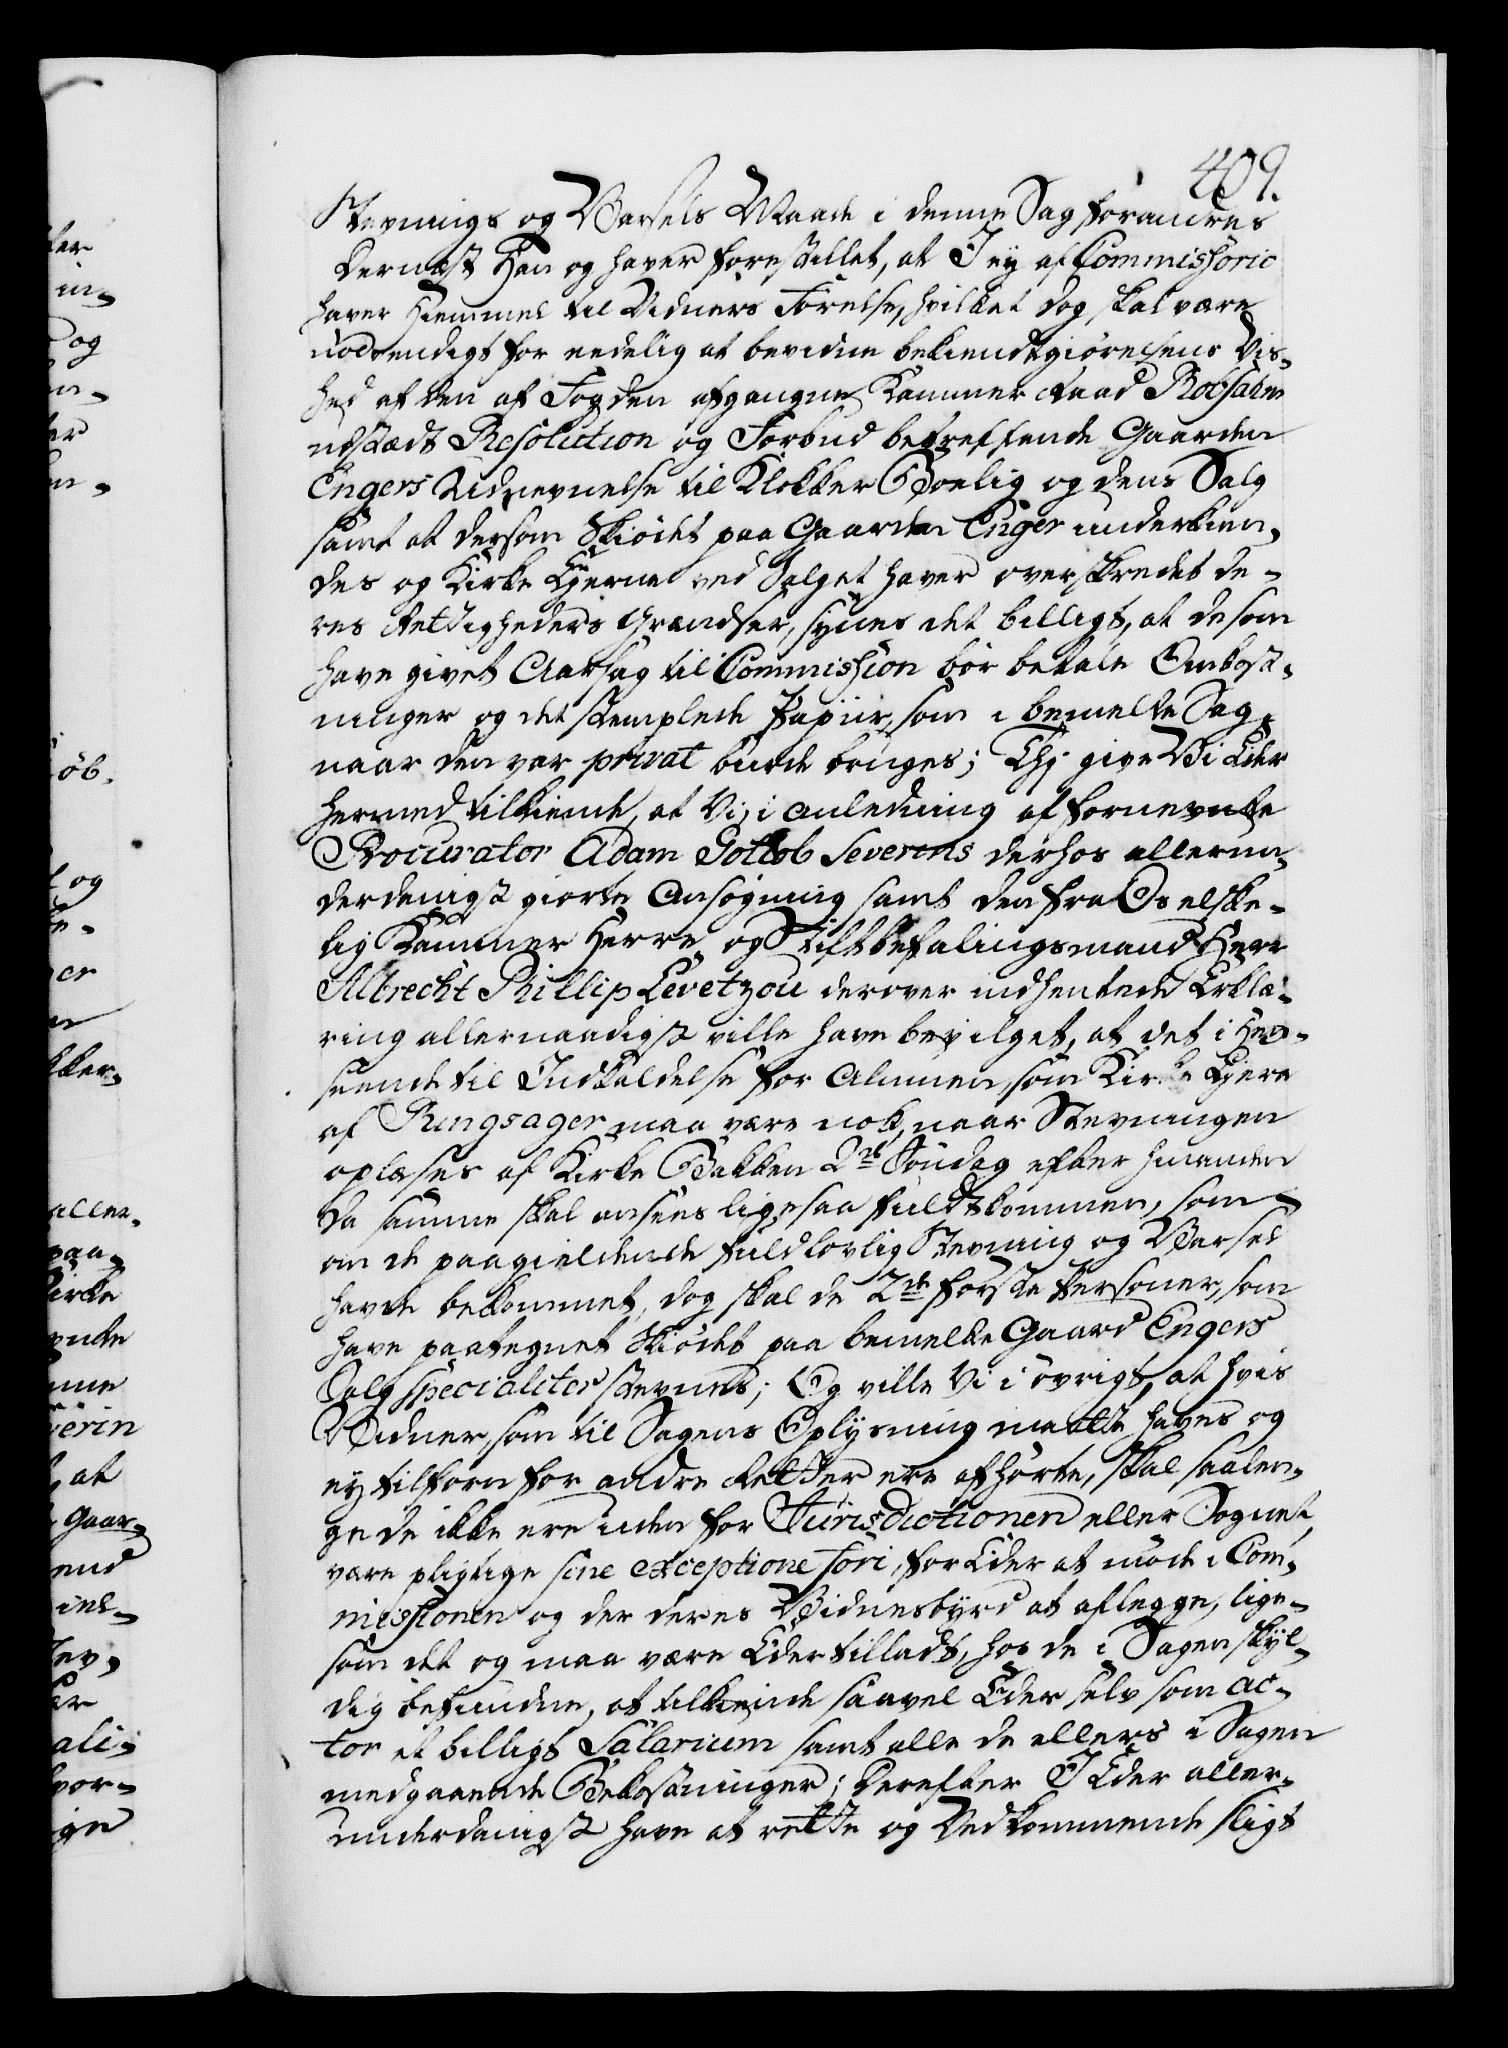 409.
Stevnings og Varsels Maade i denne Sag forandres
dernæst Han og haver forestillet, at I ey af Commissorio
haver Hiemmel til Vidners Førelse, hvilket dog skal være
nødvendigt for eedelig at bevidne bekiendtgiørelsens Vis-
hed af den af Fogden afgangne Kammer Raad Robsahm
udstædt Resolution og Forbud betreffende Gaarden
Engers Udnevnelse til Klokker Boelig og dens Salg
samt at dersom Skiødet paa Gaarden Enger underkien-
des og Kirke Ejerne ved Salget haver overskredet de-
res Rettigheders Grændser, synes det billigt, at de som
have givet Aarsag til Commission bør betale Omkost-
ninger og det stemplede Papiir, som i bemelte Sag,
naar den var privat burde bruges; Thi give Vi Eder
hermed tilkiende, at Vi, i anledning af fornevnte
Procurator Adam Gottlob Severins derhos allerun-
derdanigst giorte Ansøgning samt den fra Os elske-
lig Kammer Herre og Stiftbefalingsmand Herr
Albrecht Phillip Levetzou derover indhentede Erklæ-
ring allernaadigst ville have bevilget, at det i Hen-
seende til Indkaldelse for Almuen, som Kirke Ejere
af Ringsager maa være nok, naar Stevningen
oplæses af Kirke Bakken 2de Søndag efter hinanden
da samme skal ansees ligesaa fuldtkommen, som
om de paagieldende fuldlovlig Stevning og Varsel
havde bekommet, dog skal de 2de første Personer, som
have paategnet Skiødet paa bemelte Gaard Engers
Salg specialiter stevnes; Og ville Vi i øvrigt, at hvis
Vidner, som til Sagens Oplysning maatte haves og
ey tilforn for andre Retter ere afhørte, skal saalen-
ge de ikke ere uden for Jurisdictionen eller Sognet,
være pligtige sine exceptione fori, for Eder at møde i Com-
missionen og der deres Vidnesbyrd at aflegge, lige-
som det og maa være Eder tilladt, hos de i Sagen skyl-
dig befundne, at tilkiende saavel Eder selv som ac-
tor et billigt Salarium samt alle de ellers i Sagen
medgaaende Bekostninger; Derefter I Eder aller-
underdanigst have at rette og Vedkommende sligt